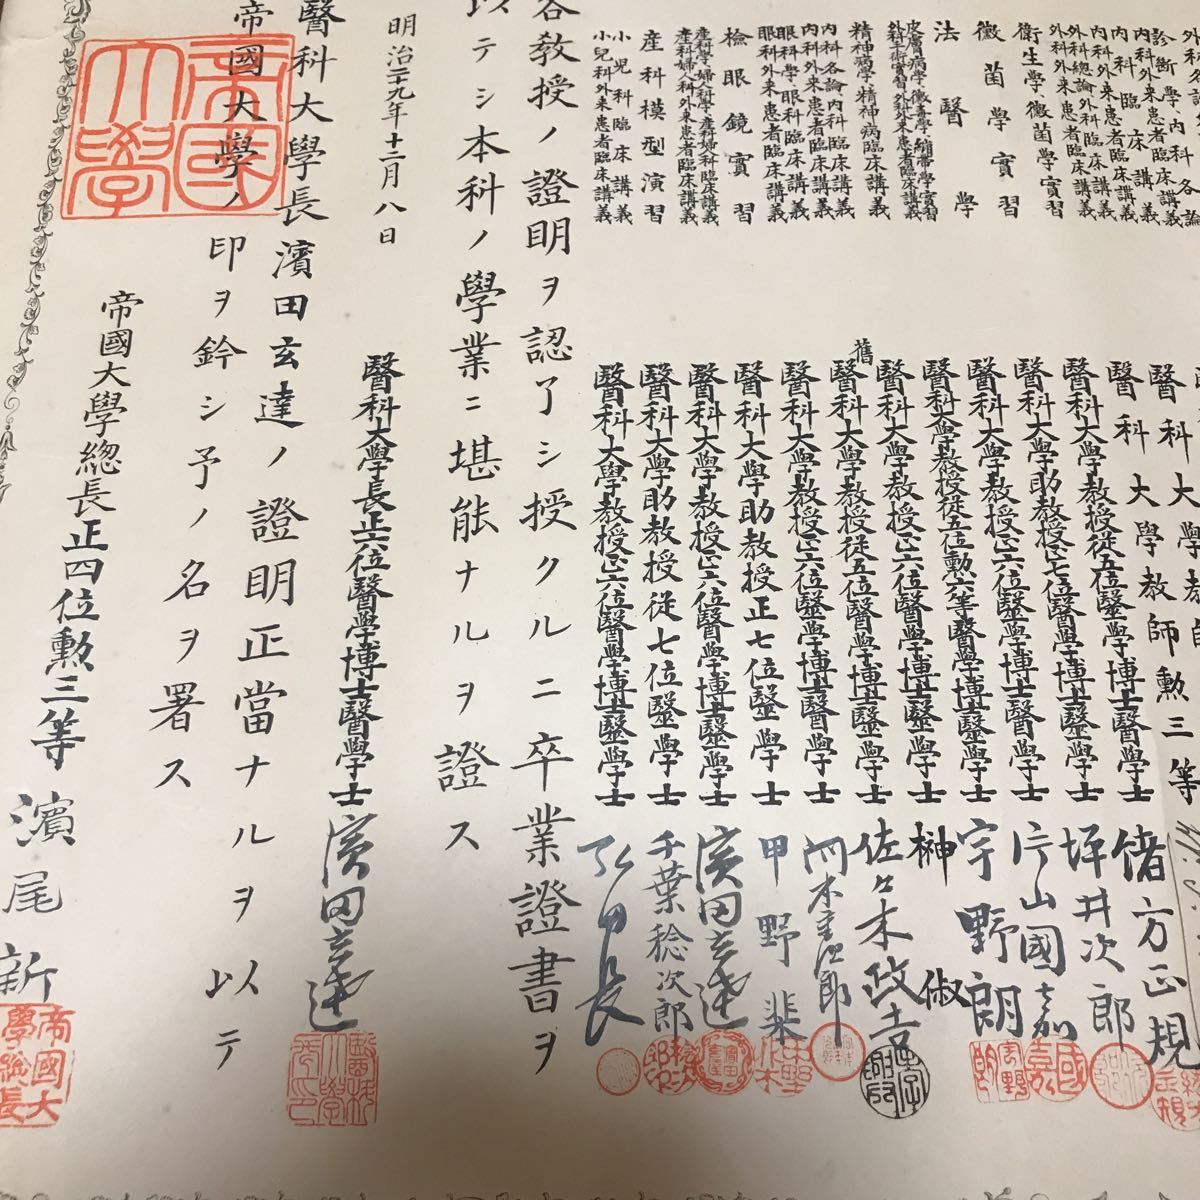 診斷學內科各論
內科外來患者臨床講義
內科臨床講義
內科外來患者臨床講義
外科總論外科臨床講義
外科外來患者臨床講義
衛生學、黴菌學實習
黴菌學實習
法醫學
皮膚病學黴毒學繃帶學實習
外科手術實習外科外來患者臨床講義
精神病學精神病臨床講義
內科各論內科臨床講義
內科外來患者臨床講義
眼科學眼科臨床講義
眼科外來患者臨床講義
檢眼鏡實習
產科模型演習
產科學婦人科學產科婦人科臨床講義
產科婦人科外來患者臨床講義
小兒科臨床講義
小兒科外來患者臨床講義
醫科大學教師勲三等
醫科大學教授從五位醫學博士醫學士 緒方正規
醫科大學教授從五位醫學博士醫學士 坪井次郎
醫科大學助教授正七位醫學博士醫學士 片山國嘉
醫科大學教授正六位醫學博士醫學士 宇野朗
醫科大學教授從五位勲六等醫學博士醫學士 榊俶
醫科大學教授正六位醫學博士醫學士 佐々木政吉
舊
醫科大學教授從五位醫學博士醫學士
醫科大學教授正六位醫學博士醫學士
醫科大學助教授正七位醫學士 甲野棐
醫科大學教授正六位醫學博士醫學士 濱田玄達
醫科大學助教授從七位醫學士 千葉稔次郎
醫科大學教授正六位醫學博士醫學士 弘田長
各教授ノ證明ヲ認了シ授クルニ卒業證書ヲ
以テシ本科ノ學業ニ堪能ナルヲ證ス
明治二十九年十二月八日
醫科大學長正六位醫學博士醫學士 濱田玄達
醫科大學長濱田玄達ノ證明正當ナルヲ以テ
帝國大學ノ印ヲ鈐シ予ノ名ヲ署ス
帝國大學總長正四位勲三等 濱尾新
帝國大學
帝國大學總長